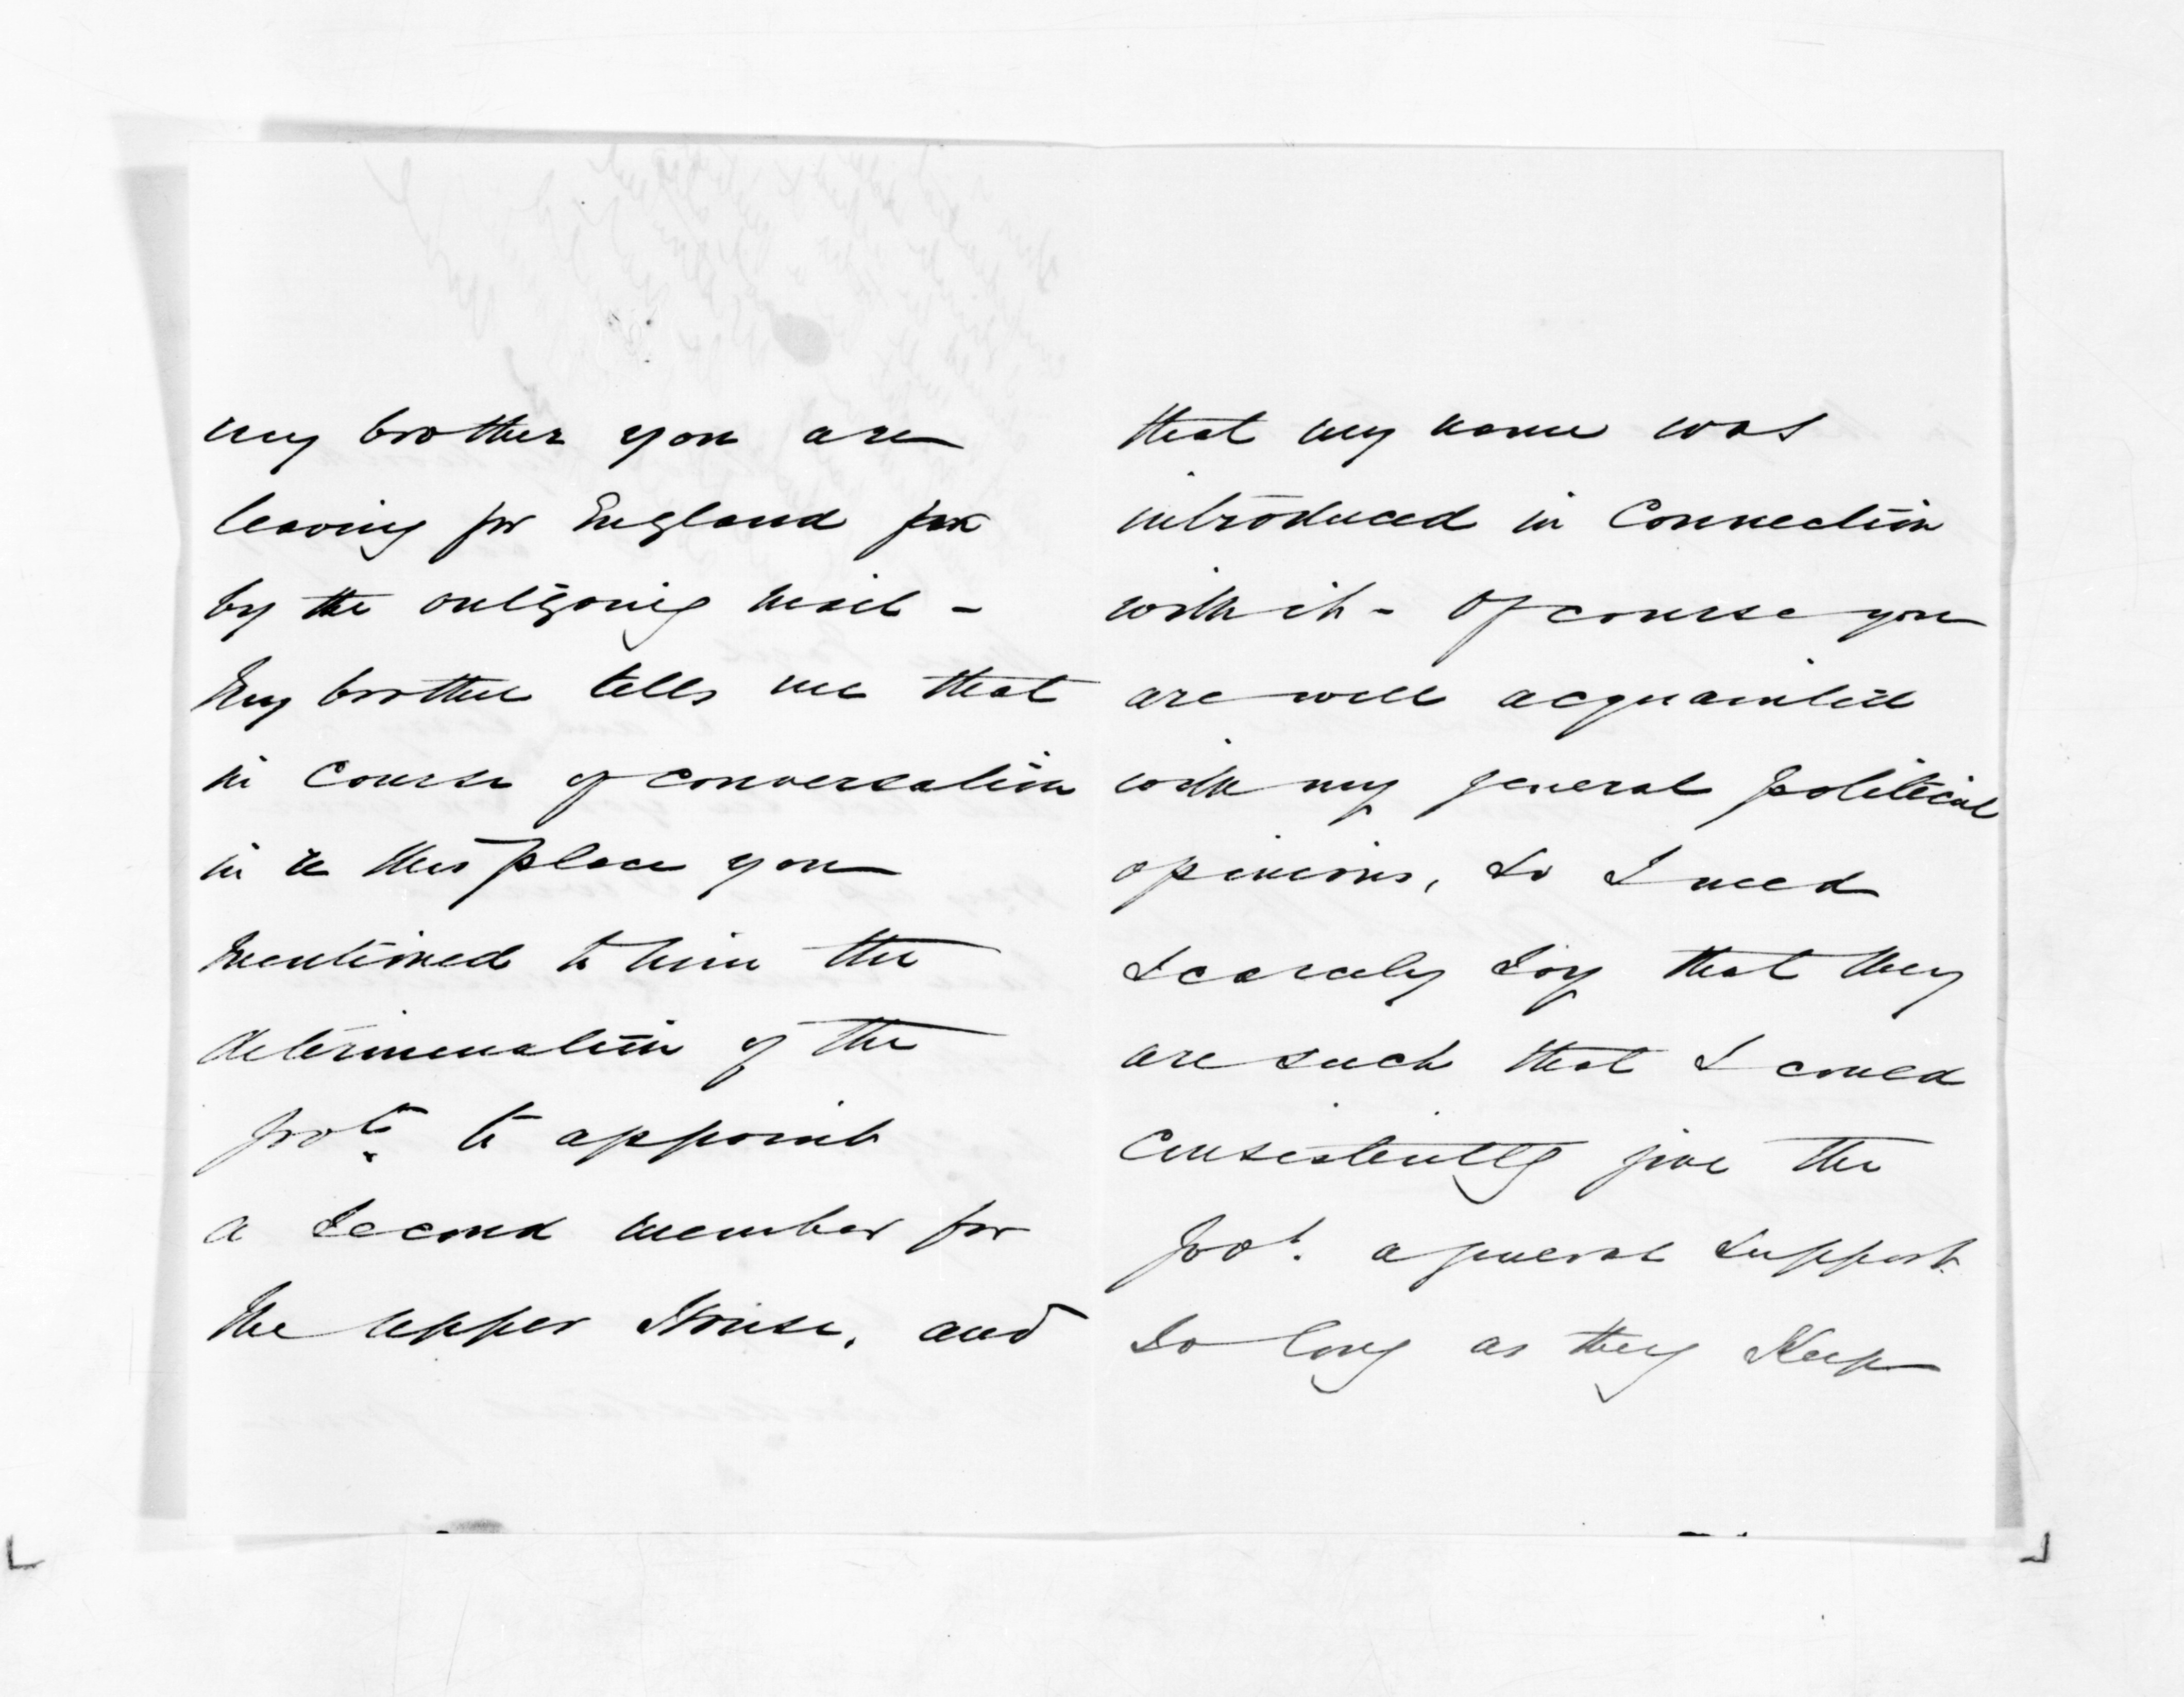 my brother you are
leaving for England
by the outgoing mail -
My brother tells me that
in course of conversation
in this place you
mentioned to him the
determination of the
Govt. to appoint
a second member for
the upper House, and
that my name was
introduced in Connection
with it - Of course you
are well acquainted
with my general political
opinions, so I need
scarcely say that they
are such that I could
consistently give the
Govt. a general support
so long as they Keep